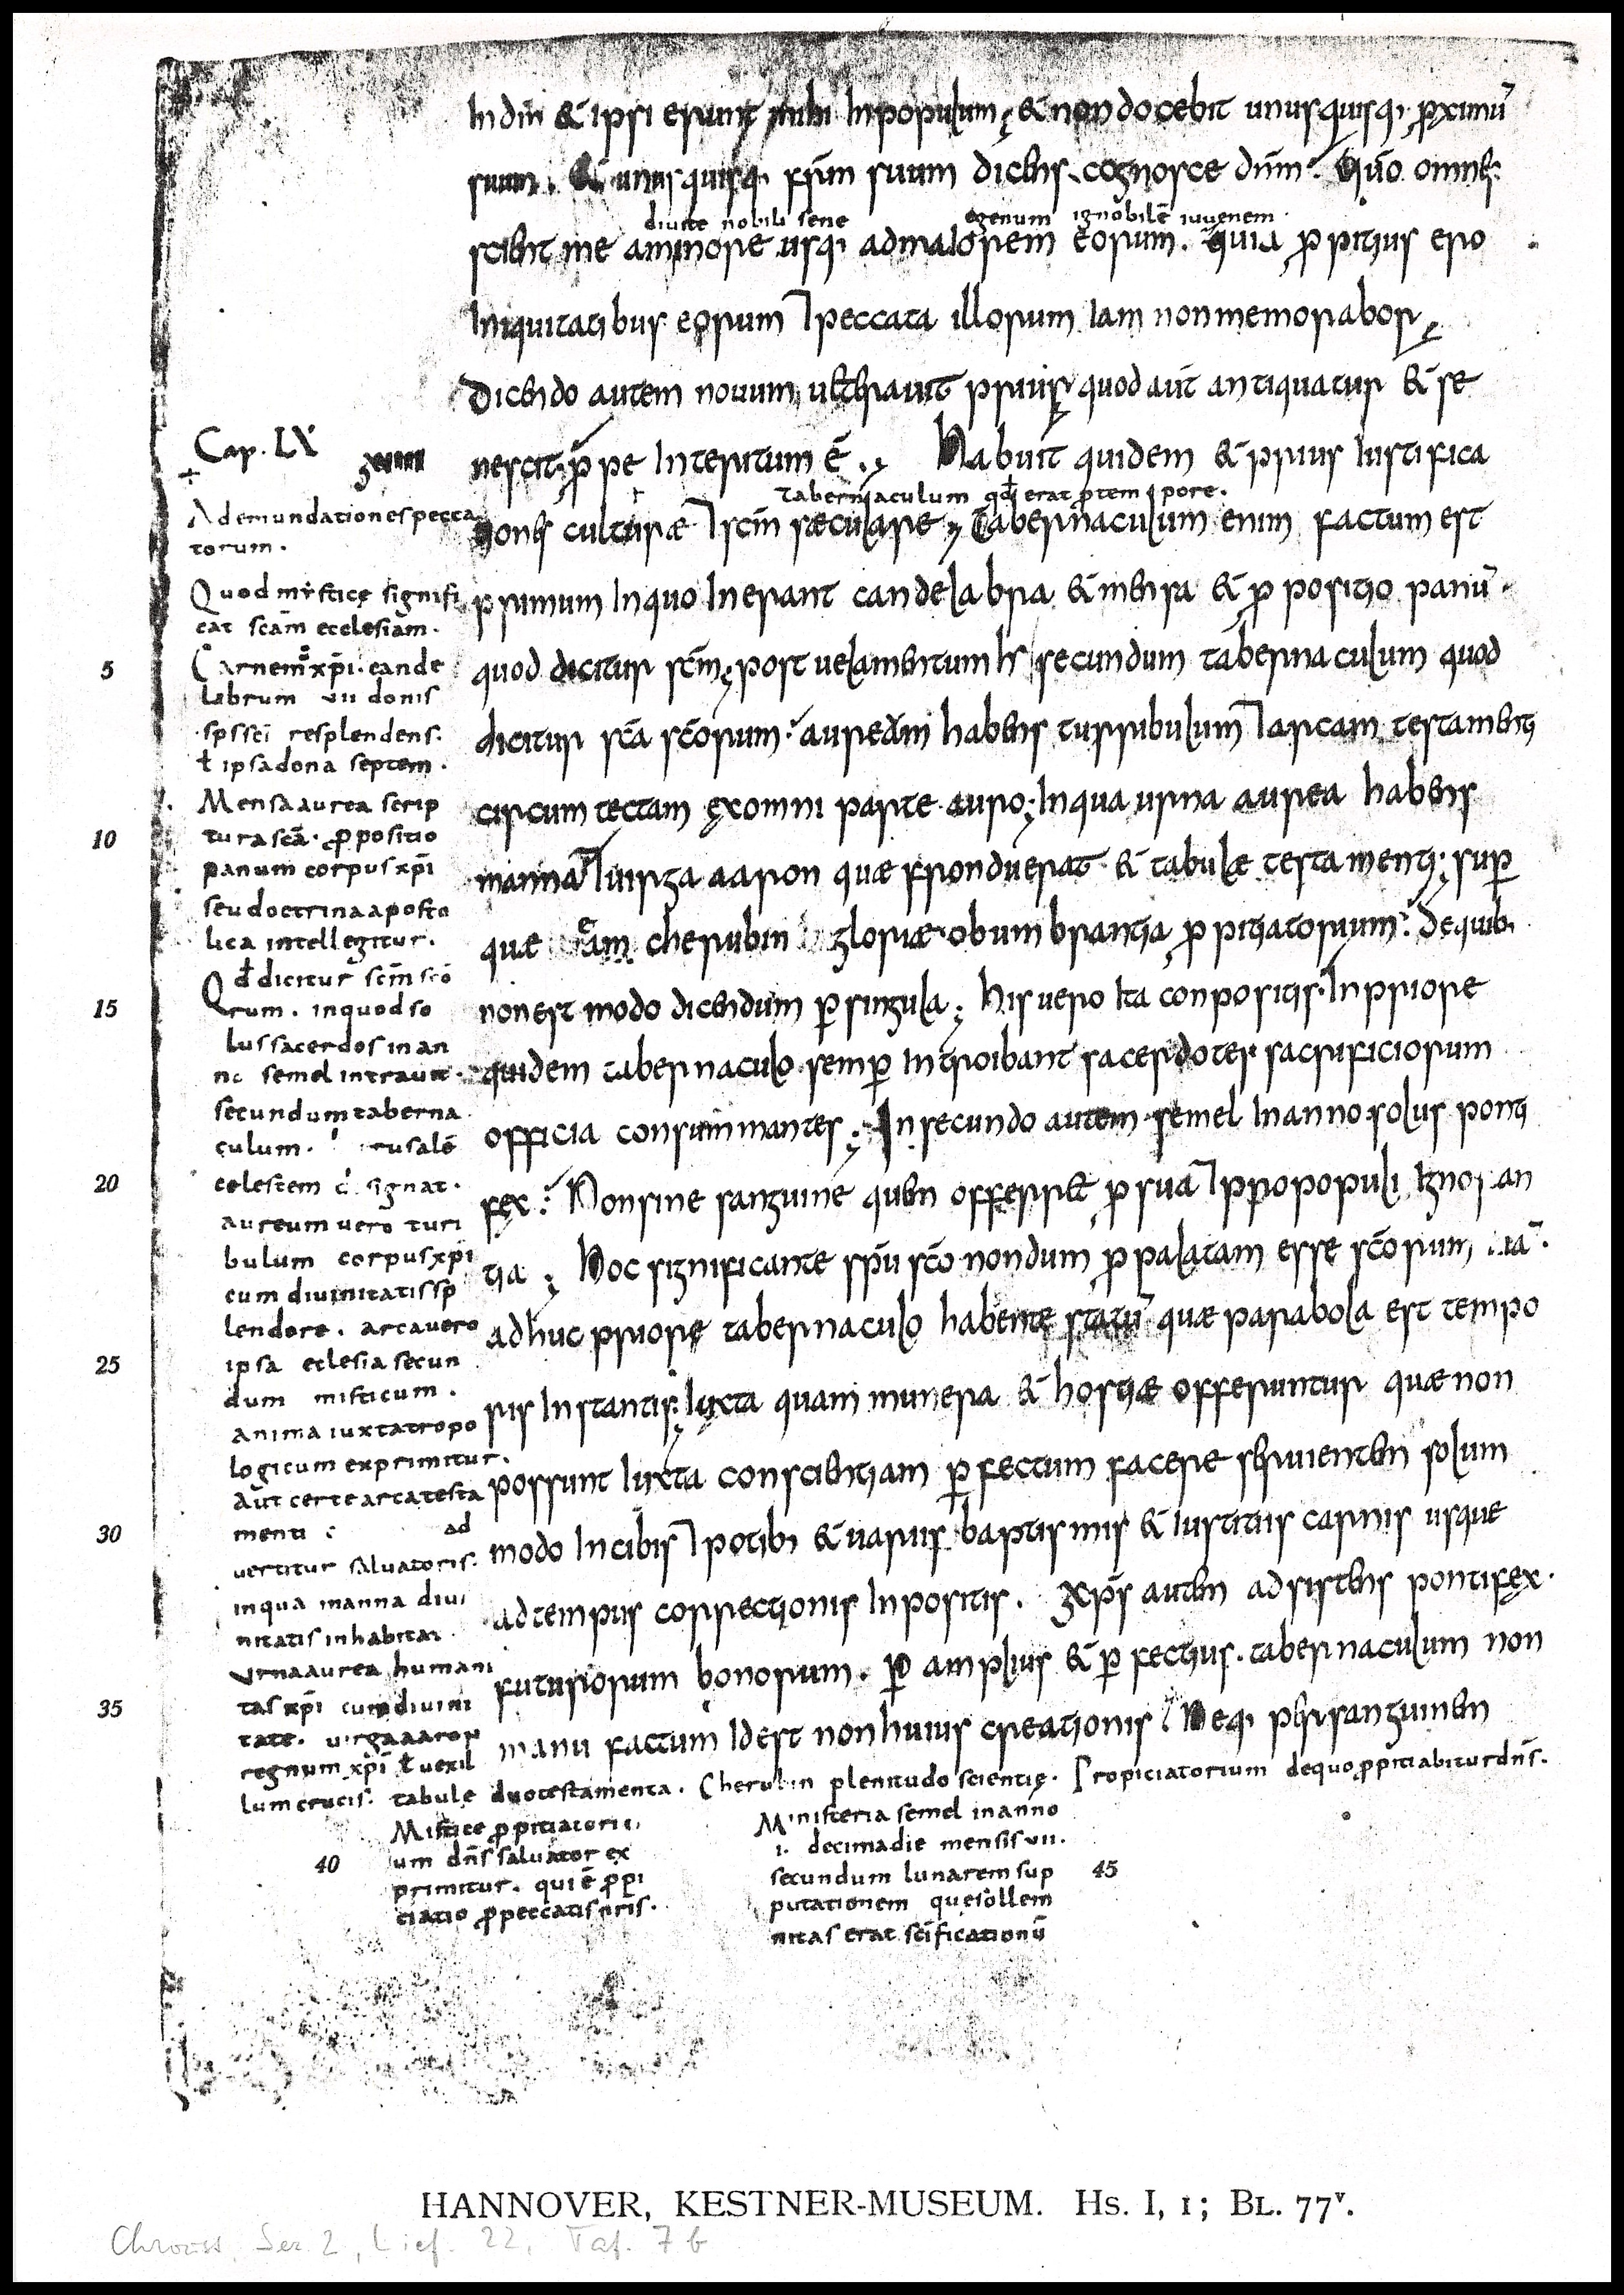 In dm̄ & ipsi erunt mihi In populum; & non docebit unusquisq; p̱ximū
suum. & unusquisq; frm̄ suum dicens. cognosce dnm̄. Quō omnes
diuite nobili sene egenum ignobilē iuuenem
scient me aminore usq; admaiorem eorum. quia p̱pitius ero
Iniquitatibus eorum ⁊ peccata illorum Iam nonmemorabor;
Dicendo autem nouum ueterauit prius; quod aut̄ antiquatur & se
Cap. LX
nescit p̱pe Interitum ē. Habuit quidem & prius Iustifica
tabernaculum qd̄ erat p̱tempore.
tiones culturæ ⁊ scm̄ sæculare; Tabernaculum enim factum est
primum Inquo Inerant candelabra & mensa & p̱positio panū
5 quod dicitur scm̄; post uelamentum secundum tabernaculum quod
dicitur scā scōrum. aureum habens turribulum ⁊ arcam testamenti
circumtectam exomni parte auro; Inqua urna aurea habens
manna ⁊ uirga aaron quæ fronduerat & tabulæ testamenti; sup̱
quæ eam cherubin gloriæ obumbrantia p̱pitiatorium. Dequib;
15 nonest modo dicendum p̱singula; His uero Ita conpositis. Inpriore
quidem tabernaculo semp̱ Introibant sacerdotes sacrificiorum
officia consummantes; In secundo autem semel Inanno solus ponti
20 fex. Nonsine sanguine quem offerret p̱sua ⁊ p̱ropopuli Ignoran
tia; Hoc significante spū scō nondum p̱palatam esse scōrum uiā.
adhuc priore tabernaculo habente statū quæ parabola est tempo
ris Instantis; Iuxta quam munera & hostiæ offeruntur quæ non
possunt Iuxta conscientiam p̱fectum facere seruientem solum
modo Incibis ⁊ potib; & uariis baptismis & Iustitiis carnis usque
adtempus correctionis Inpositis. xp̄s autem adsistens pontifex.
futurorum bonorum. p̱ amplius & p̱fectius. tabernaculum non
manu factum Idest nonhuius creationis. Neq; per sanguinem
Ademundationespecca
torum.
Quod mystice signifi
cat scām ecclesiam.
Carnem xp̄i. cande
labrum uii donis
sp̄s sci resplendens.
ł ipsadona septem.
Mensaaurea scrip
10 turascā. p̱positio
panum corpus xp̄i
seu doctrinaaposto
lica intellegitur.
Qd̄ dicitur scm̄ scō
rum. inquodso
lussacerdos inan
no semel intrauit
secundumtaberna
culum.
celestem signat.
aureum uero turi
bulum corpusxp̄i
cum diuinitatissp
lendore. arcauero
25 ipsa eclesia secun
dum misticum.
anima iuxtatropo
logicum exprimitur.
Aut certe arcatesta
30 menti ad
uertitur saluatoris.
inqua manna diui
nitatis inhabitat
Urnaaurea humani
35 tas xp̄i cumdiuini
tate. uirgaaaron
regnum xp̄i ł uexil
lumcrucis. tabule duotestamenta. Cherubin plenitudo scientię. Propiciatorium dequo p̱pitiabiturdn̄s.
Mistice p̱pitiatori
40 um dn̄s saluator ex
primitur. qui ē p̱pi
ciatio p̱peccatis nr̄is.
Ministeria semel inanno
.i. decimadie mensis uii.
secundum lunarem sup 45
putationem quesollem
nitas erat scīficationū
HANNOVER, KESTNER-MUSEUM. Hs. I, 1; Bl. 77v.
Chroust, Ser. 2, Lief. 22, Taf. 7 b